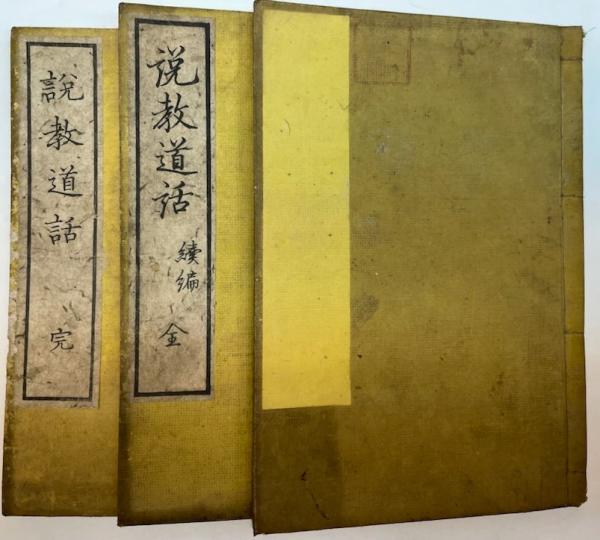 說教道話
完
説教道話
續編
全